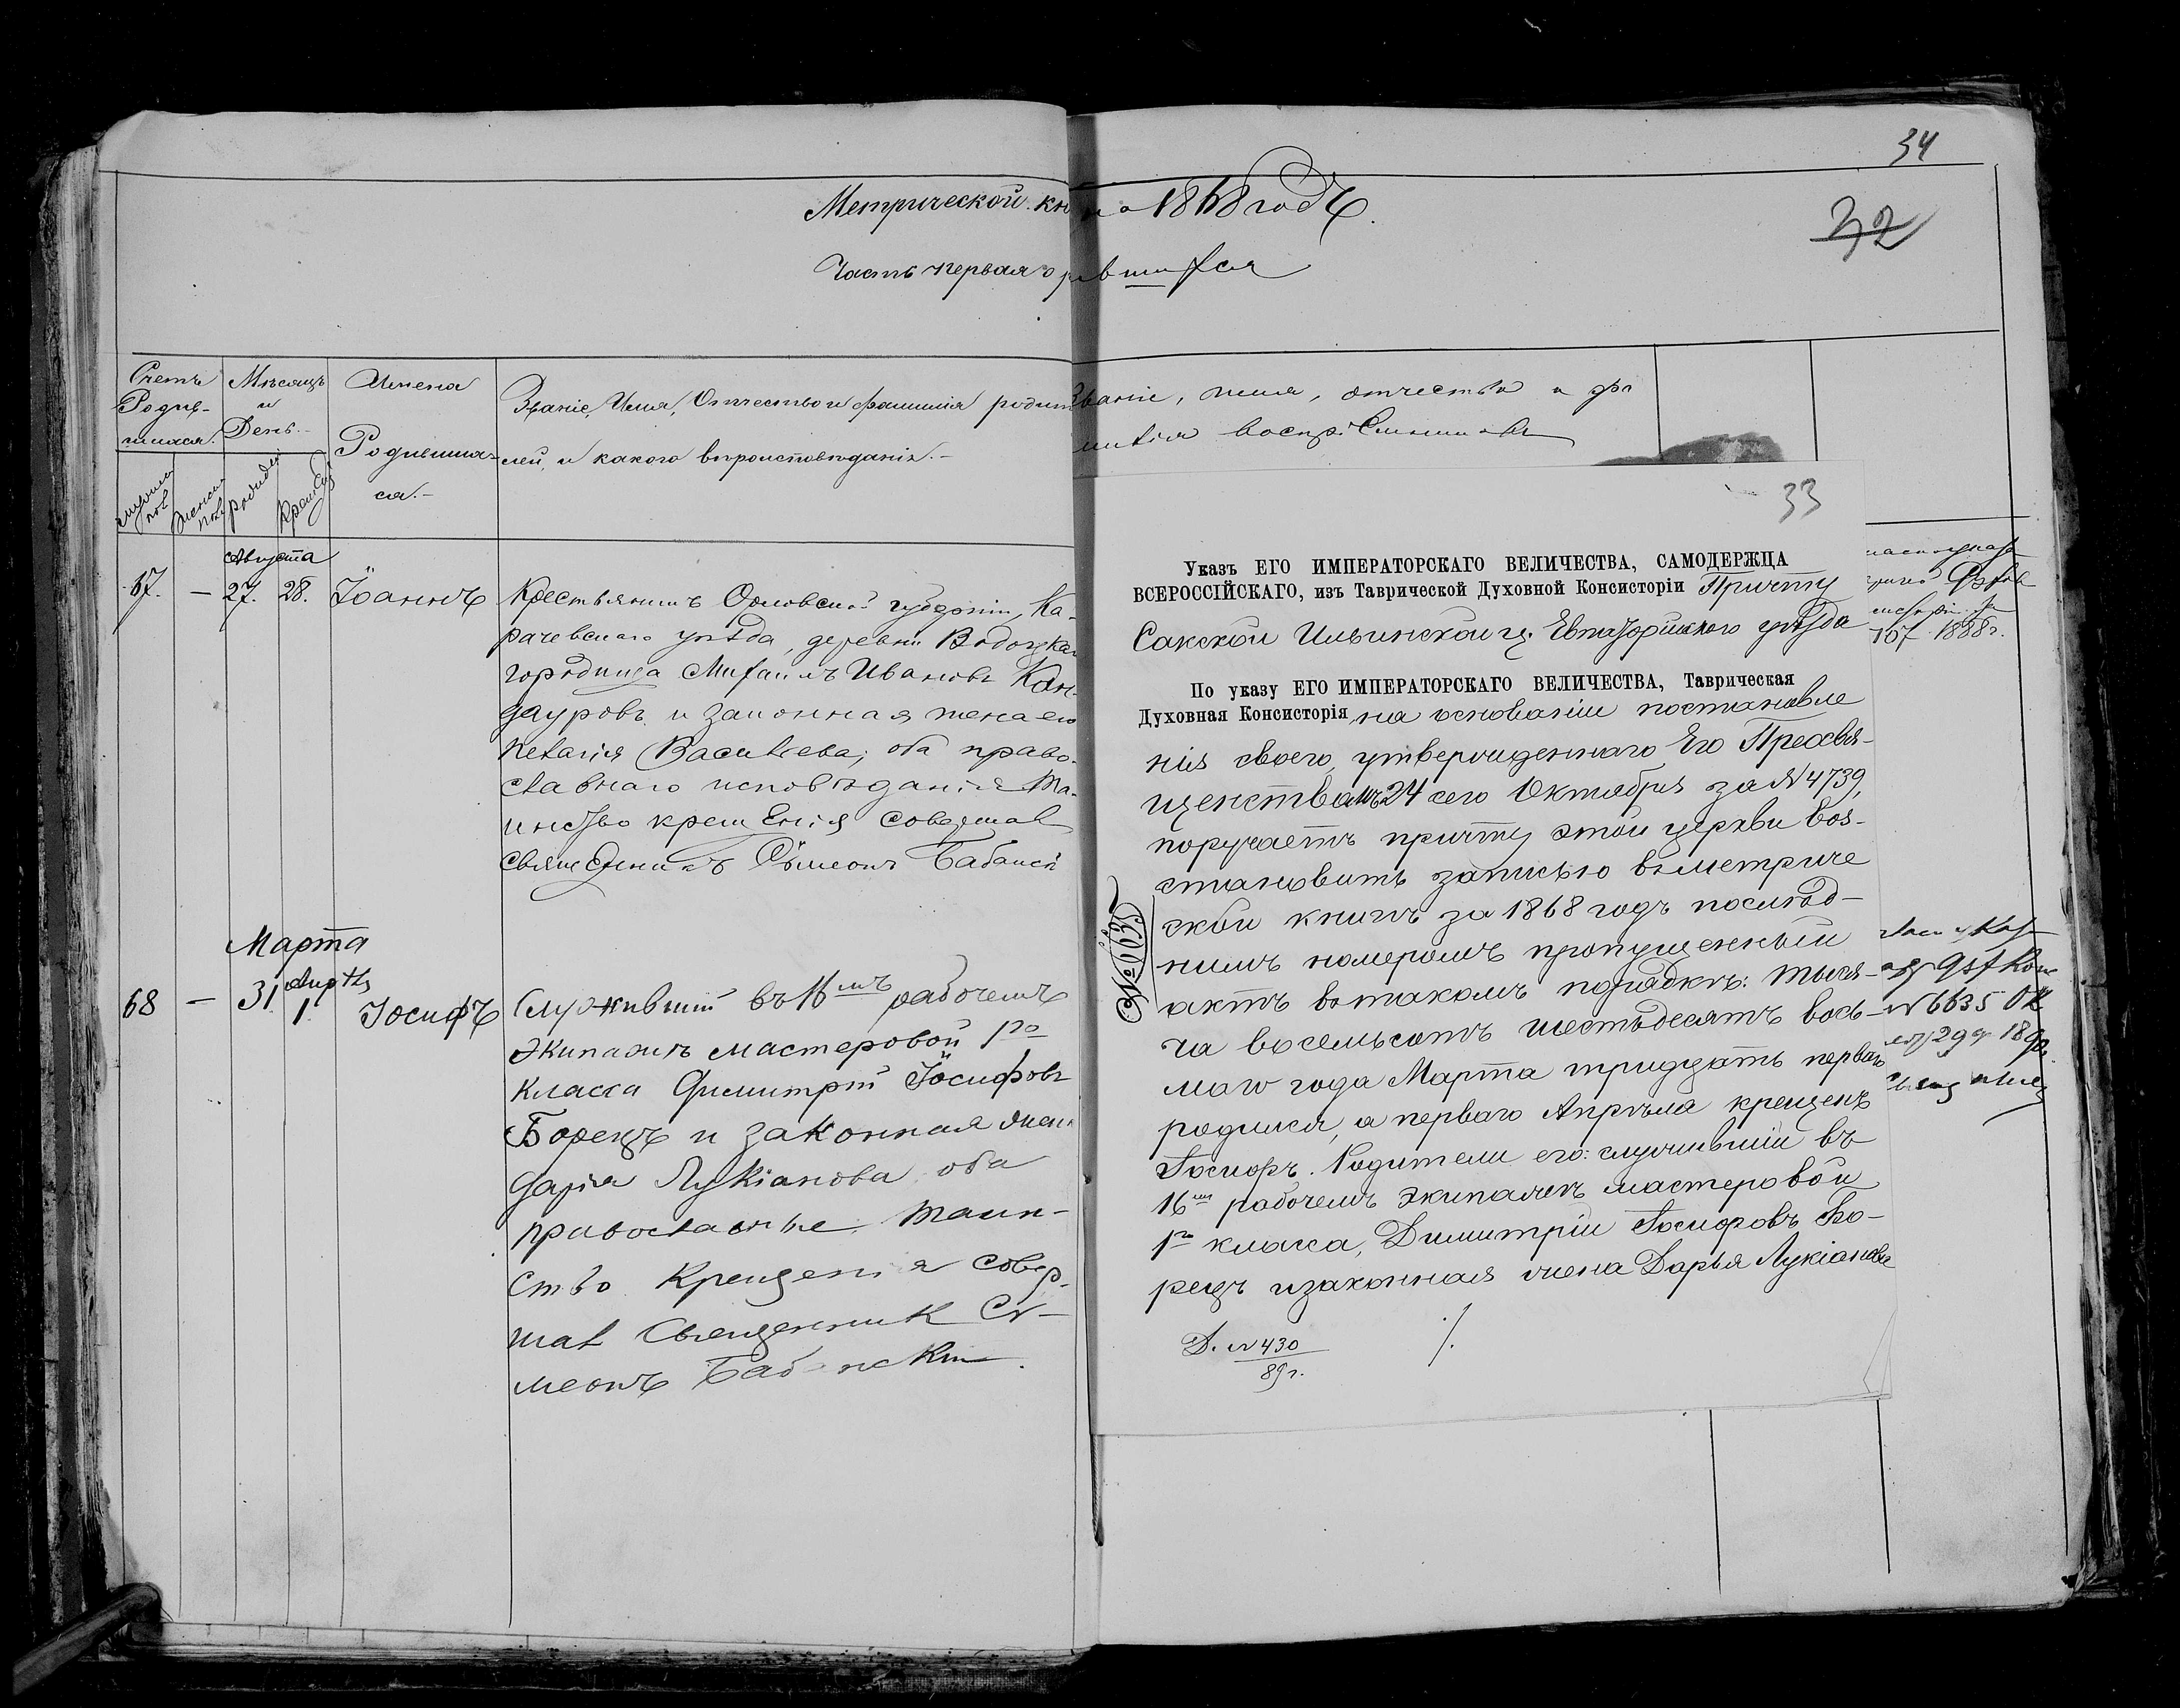 34
32
Метрической кн на 1868 годъ.
Часть первая о р вшихся
Счетъ Родив-шихся.
Мѣсяцъ и День.
Имена Родивша-гося.-
Званіе, Имя, Отчество и фамилія родит
лей, и какого вѣроисповѣданія.-
Званіе, имя, отчество и фа
милія воспріемниковъ
Августа
67. — 27. 28. Іоаннъ
Крестьянинъ Орловской губерніи, Ка-
рачевскаго уѣзда, деревни
городища Михаилъ Ивановъ Кон-
дауровъ и законная жена его
Васильева; оба право-
славнаго исповѣданія Та-
инство крещенія совершал
священникъ Сѵмеонъ Бабанск
Марта
68 — 31 Апрѣль 1. Іосифъ
Служившій въ 16мъ рабочемъ
экипажѣ мастеровой 1го
класса Димитрій Іосифовъ
Борецъ и законная жен
Дарія Лукіанова оба
православные. Таин-
ство Крещенія совер-
шал Священник Сѵ-
меонъ Бабанскій.
33
Указъ ЕГО ИМПЕРАТОРСКАГО ВЕЛИЧЕСТВА, САМОДЕРЖЦА
ВСЕРОССІЙСКАГО, изъ Таврической Духовной Консисторіи Причту
Сакской Ильинской ц. Евпаторійскаго уѣзда
По указу ЕГО ИМПЕРАТОРСКАГО ВЕЛИЧЕСТВА, Таврическая
Духовная Консисторія, на основаніи постановле
нія своего, утвержденнаго Его Преосвя-
щенствомъ 24 сего Октября за № 4739,
поручаетъ причту этой церкви воз-
становить записью въ метриче
ской книгѣ за 1868 годъ послѣд-
нимъ номеромъ пропущенный
актъ въ такомъ порядкѣ: тыся-
ча восемьсотъ шестьдесятъ вось-
маго года Марта тридцать перваго
родился, а перваго Апрѣля крещенъ
Іосифъ. Родители его: служившій въ
16мъ рабочемъ экипажѣ мастеровой
1го класса, Димитрій Іосифовъ Бо-
рецъ и законная жена Дарья Лукіанова
№ 6635
Д. № 430
89 г.
107 1888 г.
№ 6635 Ок
29 1890